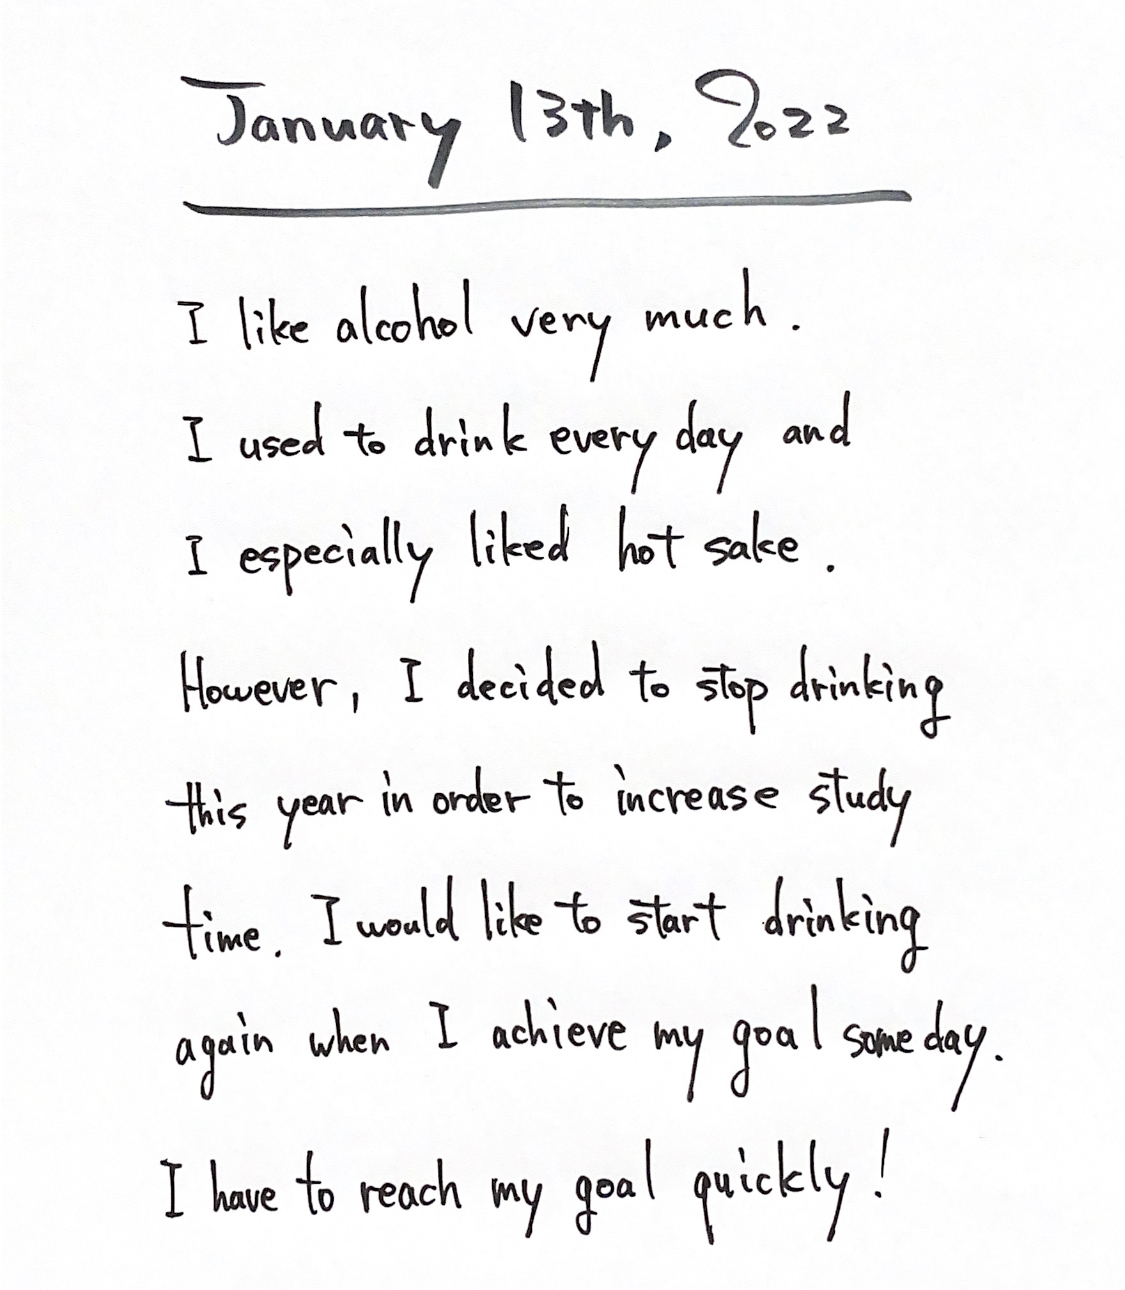 January 13th, 2022
I like alcohol very much.
I used to drink every day and
I especially liked hot sake.
However, I decided to stop drinking
this year in order to increase study
time. I would like to start drinking
again when I achieve my goal some day.
I have to reach my goal quickly!